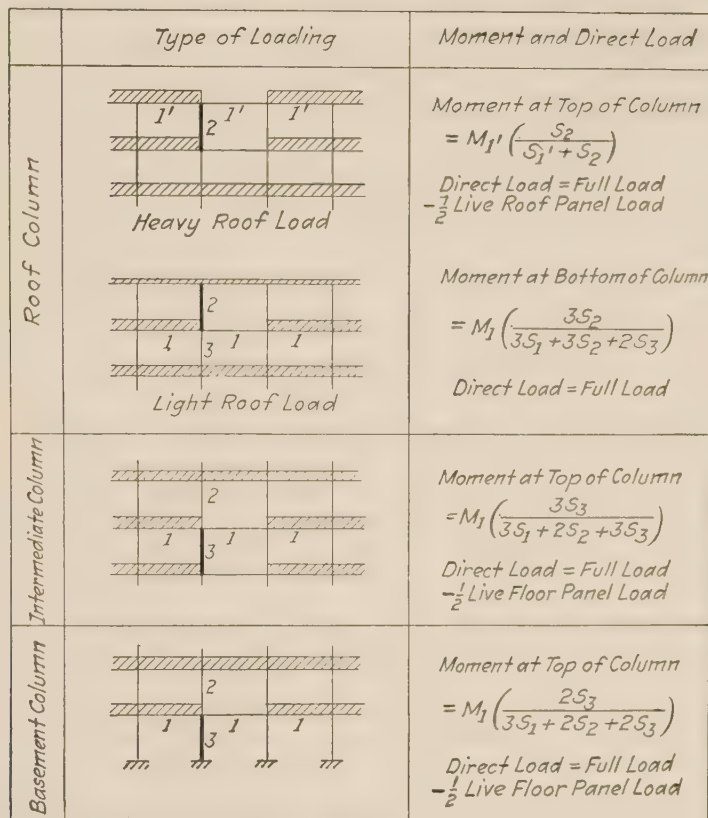 Type of Loading
Moment and Direct Load
Roof Column
1' 1' 1'
2
Heavy Roof Load
Moment at Top of Column
= M1' (S2 / S1' + S2)
Direct Load = Full Load
-1/2 Live Roof Panel Load
2
1 3 1 1
Light Roof Load
Moment at Bottom of Column
= M1 (3S2 / 3S1 + 3S2 + 2S3)
Direct Load = Full Load
Intermediate Column
2
1 3 1 1
Moment at Top of Column
= M1 (3S3 / 3S1 + 2S2 + 3S3)
Direct Load = Full Load
-1/2 Live Floor Panel Load
Basement Column
2
1 3 1 1
Moment at Top of Column
= M1 (2S3 / 3S1 + 2S2 + 2S3)
Direct Load = Full Load
-1/2 Live Floor Panel Load